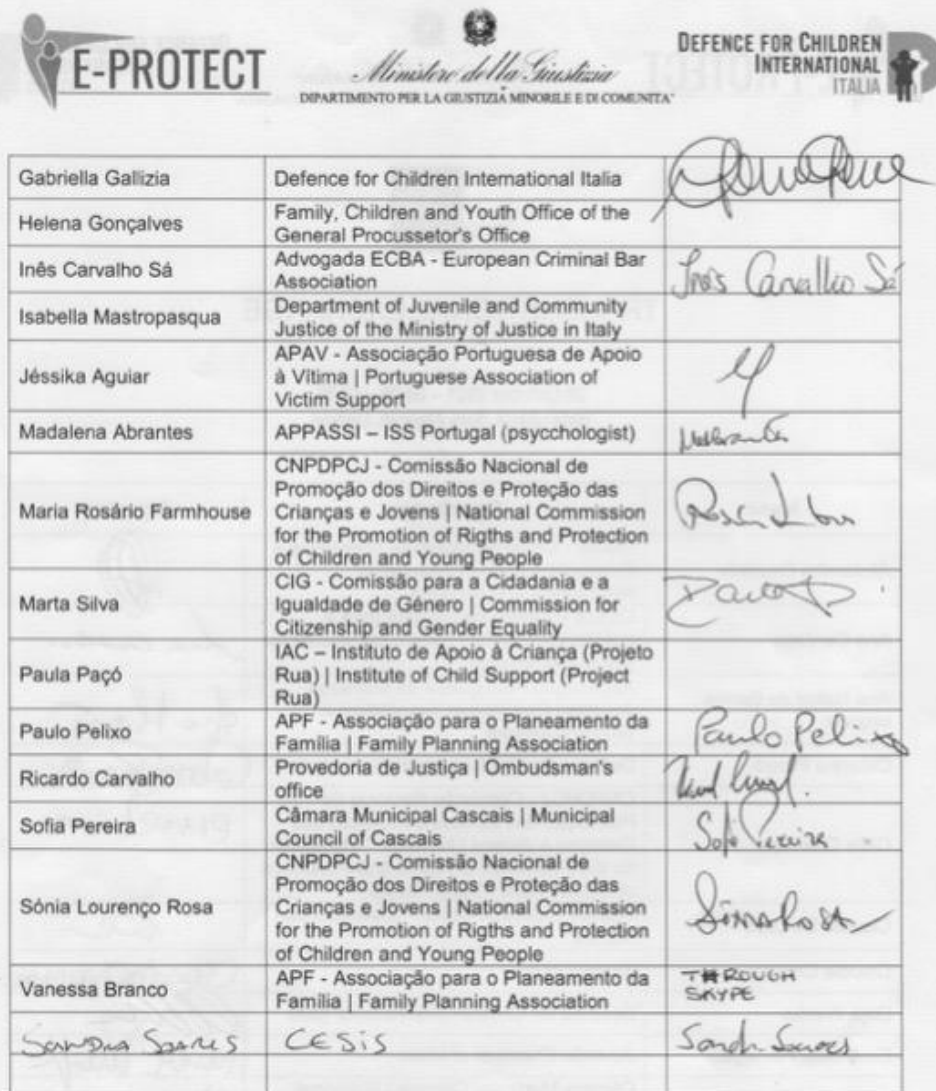 E-PROTECT
Ministero della Giustizia
DIPARTIMENTO PER LA GIUSTIZIA MINORILE E DI COMUNITA'
DEFENCE FOR CHILDREN
INTERNATIONAL
ITALIA
Gabriella Gallizia
Defence for Children International Italia
Helena Gonçalves
Family, Children and Youth Office of the
General Procussetor's Office
Inês Carvalho Sá
Advogada ECBA - European Criminal Bar
Association
Inês Carvalho Sá
Isabella Mastropasqua
Department of Juvenile and Community
Justice of the Ministry of Justice in Italy
Jéssika Aguiar
APAV - Associação Portuguesa de Apoio
à Vítima | Portuguese Association of
Victim Support
Madalena Abrantes
APPASSI – ISS Portugal (psycchologist)
Maria Rosário Farmhouse
CNPDPCJ - Comissão Nacional de
Promoção dos Direitos e Proteção das
Crianças e Jovens | National Commission
for the Promotion of Rigths and Protection
of Children and Young People
Marta Silva
CIG - Comissão para a Cidadania e a
Igualdade de Género | Commission for
Citizenship and Gender Equality
Paula Paçó
IAC – Instituto de Apoio à Criança (Projeto
Rua) | Institute of Child Support (Project
Rua)
Paulo Pelixo
APF - Associação para o Planeamento da
Família | Family Planning Association
Paulo Pelixo
Ricardo Carvalho
Provedoria de Justiça | Ombudsman's
office
Sofia Pereira
Câmara Municipal Cascais | Municipal
Council of Cascais
Sofia Pereira
Sónia Lourenço Rosa
CNPDPCJ - Comissão Nacional de
Promoção dos Direitos e Proteção das
Crianças e Jovens | National Commission
for the Promotion of Rigths and Protection
of Children and Young People
Sónia Rosa
Vanessa Branco
APF - Associação para o Planeamento da
Família | Family Planning Association
THROUGH
SKYPE
SANDRA SOARES
CESIS
Sandra Soares